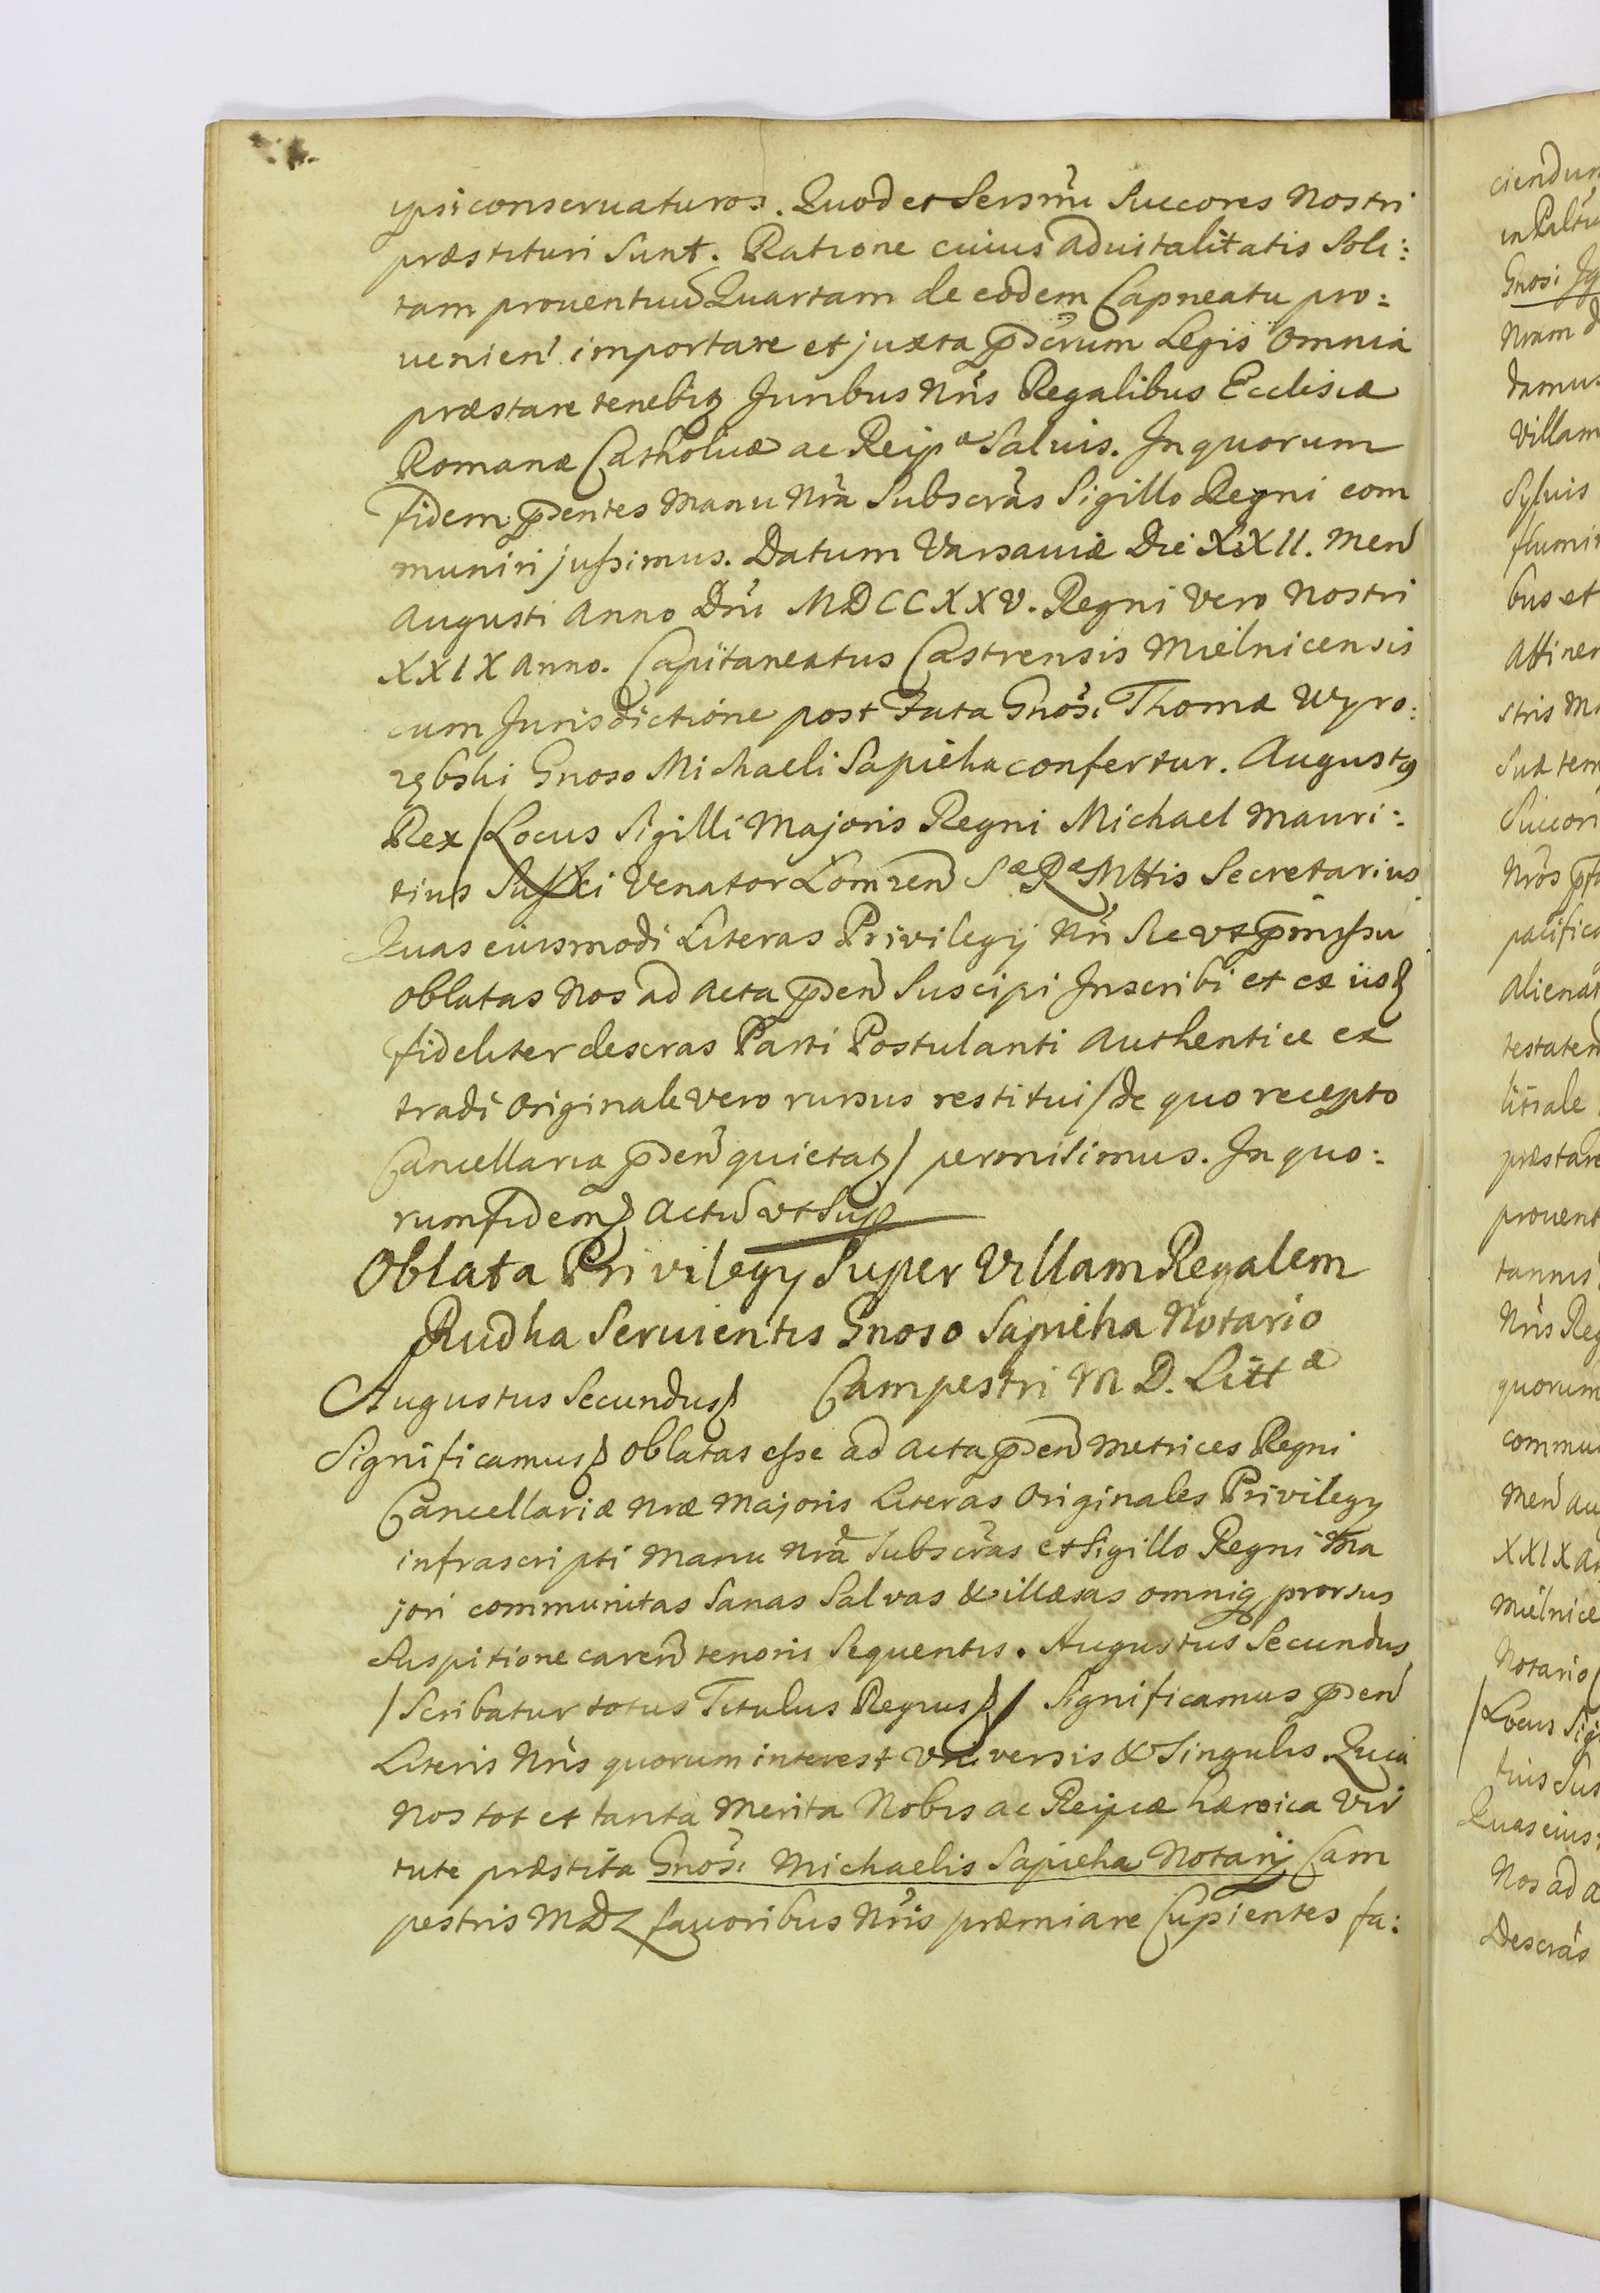 ipsi conservaturos. Quod et Sersmi Succores Nostri
præstituri Sunt. Ratione cuius advitalitatis Soli:
tam proventuu Quartam de eodem Capneatu pro:
venien importare et juxta pscrum Legis Omnia
præstare tenebitz Juribus Nris Regalibus Ecclesiæ
Romanæ Catholicæ ac Reipæ Salvis. In quorum
fidem pdentes Manu Nra Subscras Sigillo Regni com
muniri jussimus. Datum Varsaviæ Die XXII. Men
Augusti Anno Dni MDCCXXV. Regni Vero Nostri
XXIX Anno. Capitaneatus Castrensis Mielnicensis
cum Jurisdictione post Fata Gnosi Thomæ Wyro:
zębski Gnoso Michaeli Sapieha confertur. Augustq
Rex / Locus Sigilli Majoris Regni Michael Mauri:
tius Suski Venator Lomzen Sæ Ræ Mttis Secretarius
Quas eiusmodi Literas Privilegij Nri Ac vt pmissu
Oblatas Nos ad Acta pden Suscipi Inscribi et ex iisd
fideliter descras Parti Postulanti Authentice ex
tradi Originale Vero rursus restitui / de quo recepto
Cancellaria pden quietatz / permisimus. In quo:
rum fidem Actu vt Sup
Oblata Privilegy Super Villam Regalem
Rudka Servientis Gnoso Sapieha Notario
Augustus Secundus Campestri M D. Littæ
Significamus Oblatas esse ad Acta pden Metrices Regni
Cancellariæ Nræ Majoris Literas Originales Privilegy
infrascripti Manu Nra Subscras et Sigillo Regni Ma
jori communitas Sanas Salvas & illæsas omniq prorsus
Suspitione caren tenoris Sequentis. Augustus Secundus
/ Scribatur totus Titulus Regius / Significamus pden
Literis Nris quorum interest Vniversis & Singulis Quia
Nos tot et tanta Merita Nobis ac Reipcæ hæroica Vir
tute præstita Gnosi Michaelis Sapieha Notarij Cam
pestris MDL favoribus Nris præmiare Cupientes fa:
ciendum
Gnosi
Nram
damus
Villam
Sylvis
bus et
Attinen
stris
Sua
Nros
pacifica
Alienat
præstare
provent
quorum
commun
Men Au
XXIX An
Mielnice
Notario /
/ Locus Sigi
tius Sus
Quas eius:
Nos ad a
Descras